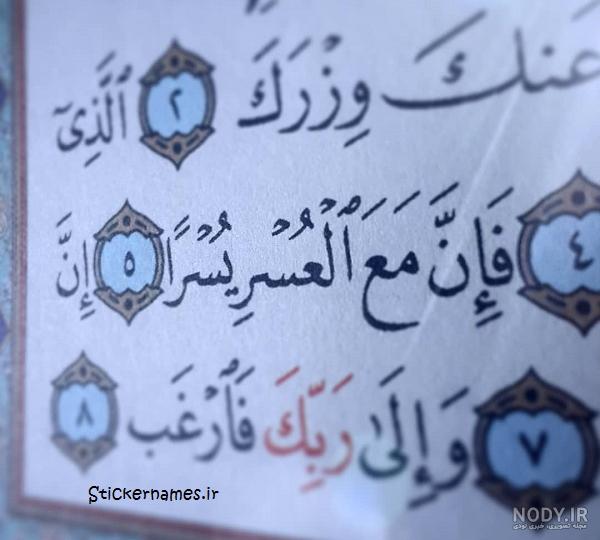 عَنكَ وِزْرَكَ ٢ ٱلَّذِىٓ
٤ فَإِنَّ مَعَ ٱلْعُسْرِ يُسْرًا ٥ إِنَّ
٧ وَإِلَىٰ رَبِّكَ فَٱرْغَب ٨
Stickernames.ir
NODY.IR
مجله تصویری، خبری نودی